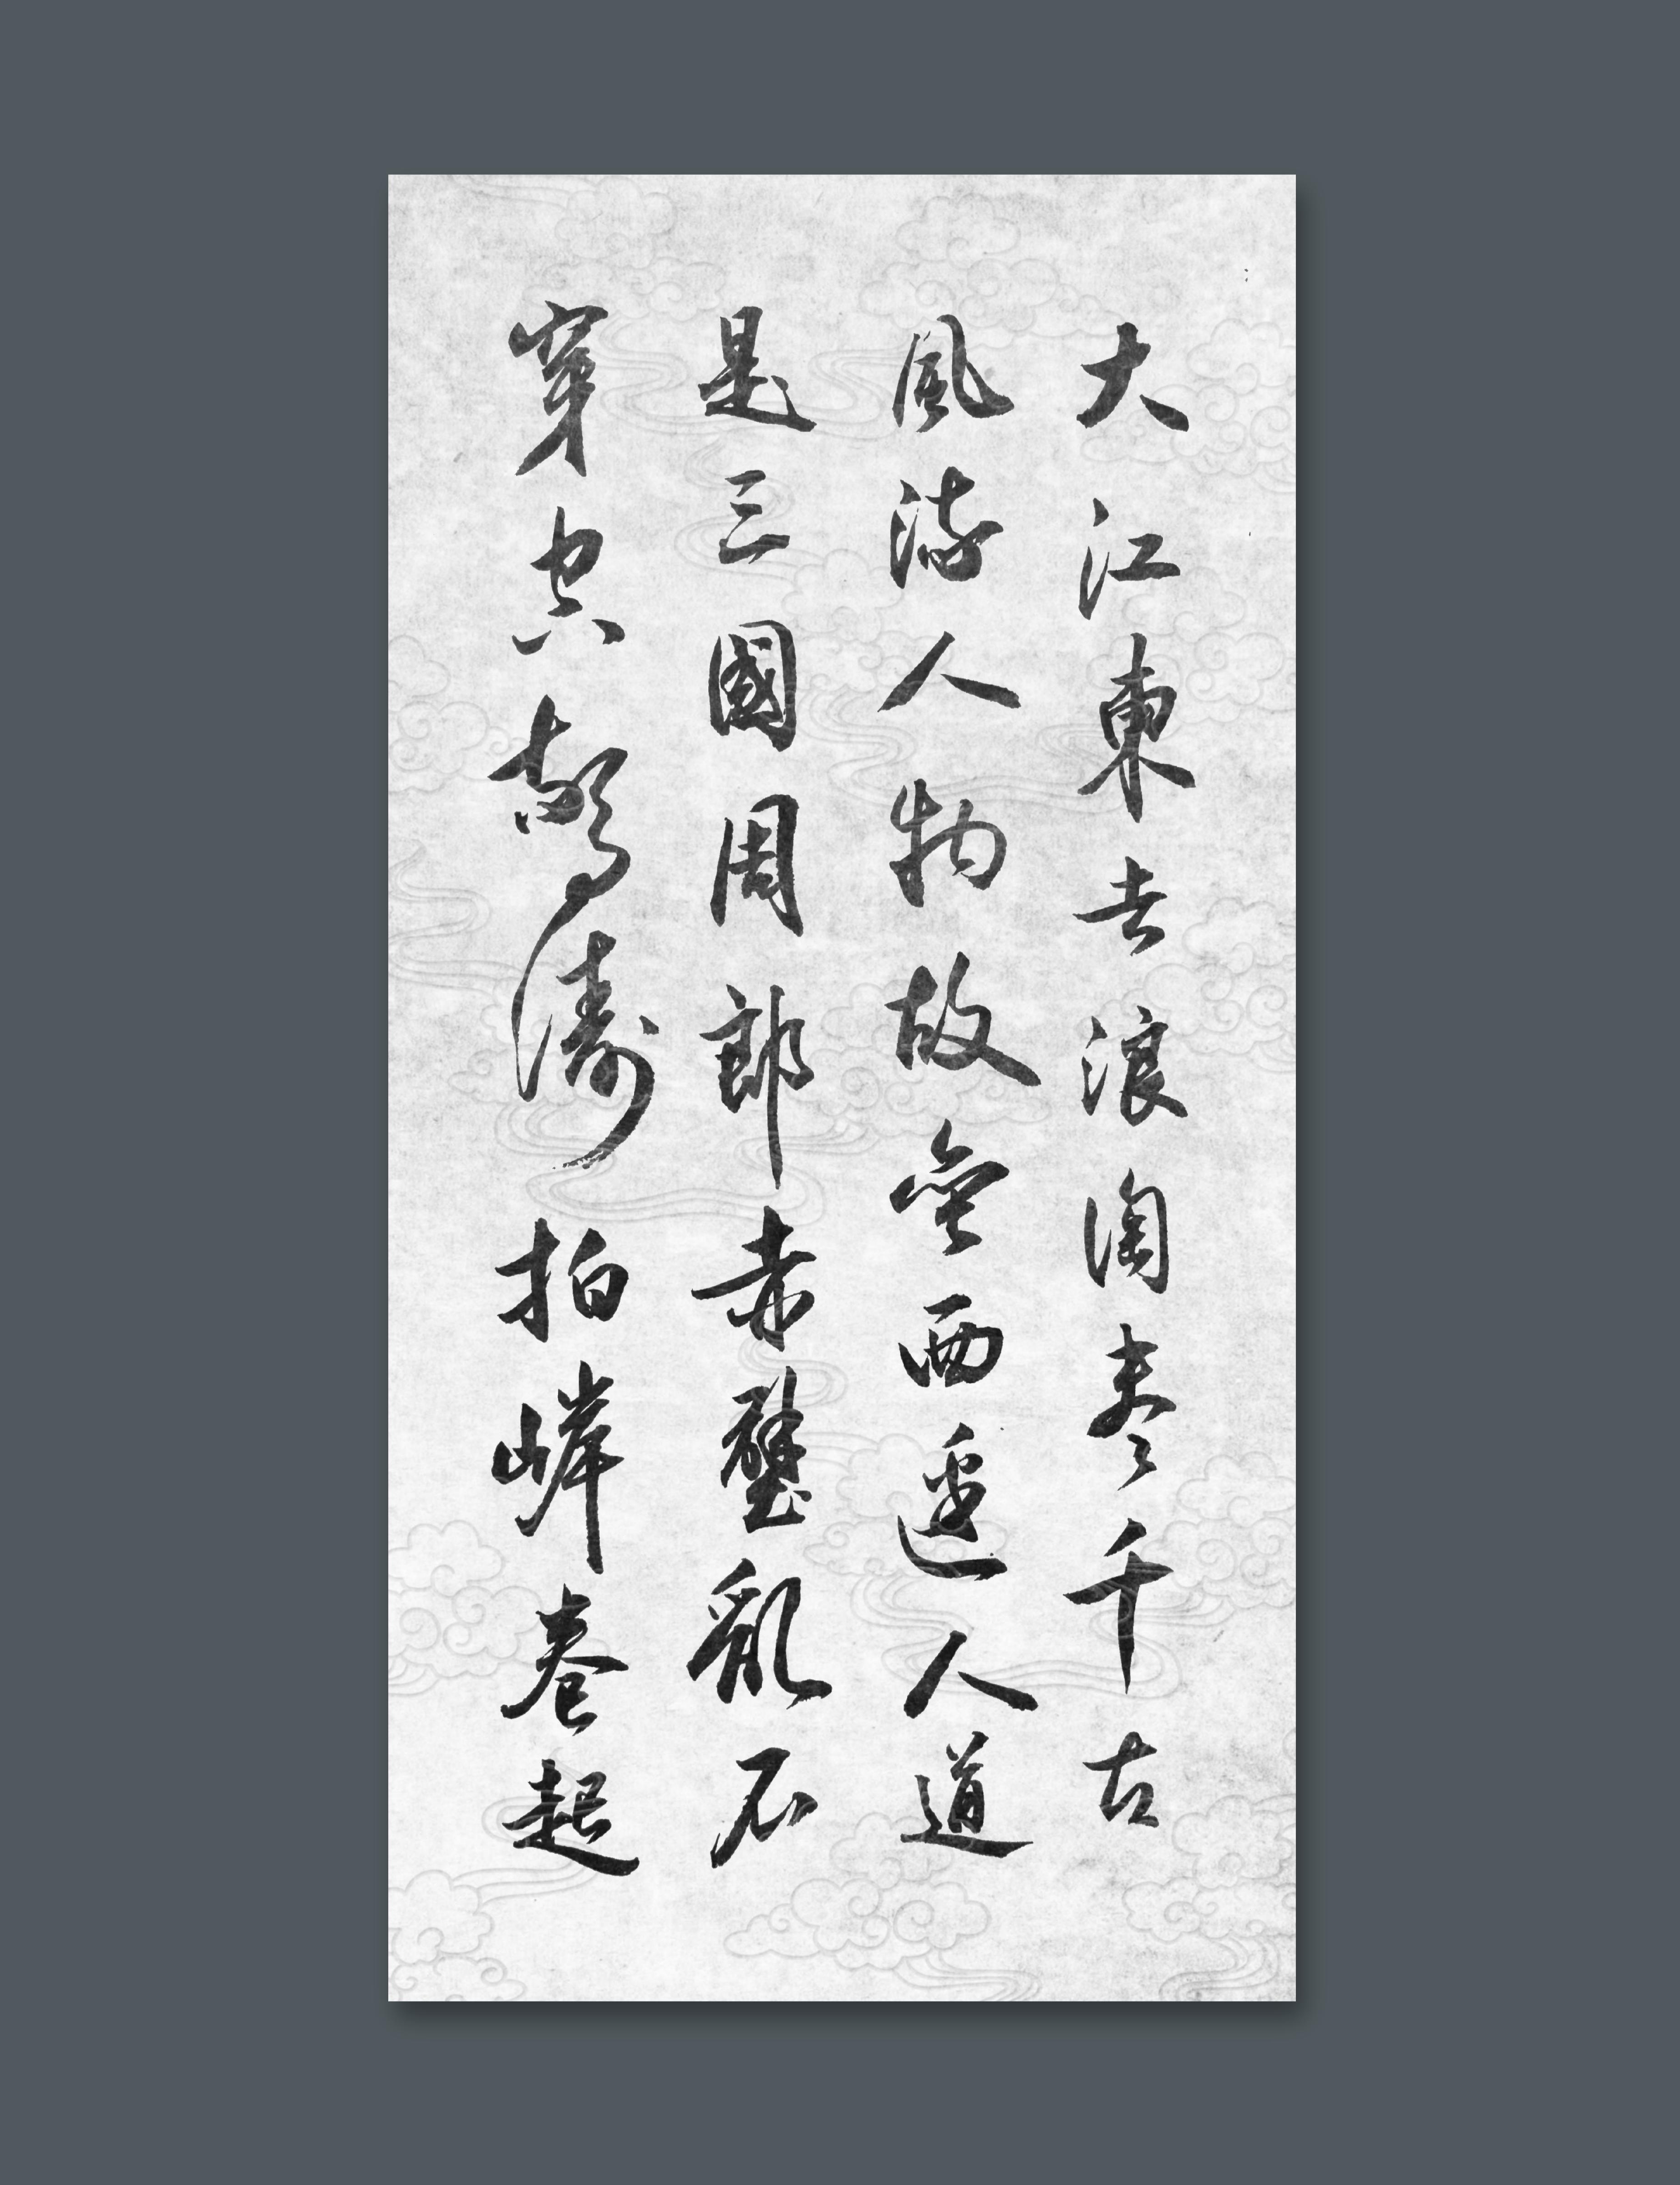 大江東去浪淘盡千古
風流人物故壘西邊人道
是三國周郎赤壁亂石
穿空驚濤拍岸卷起